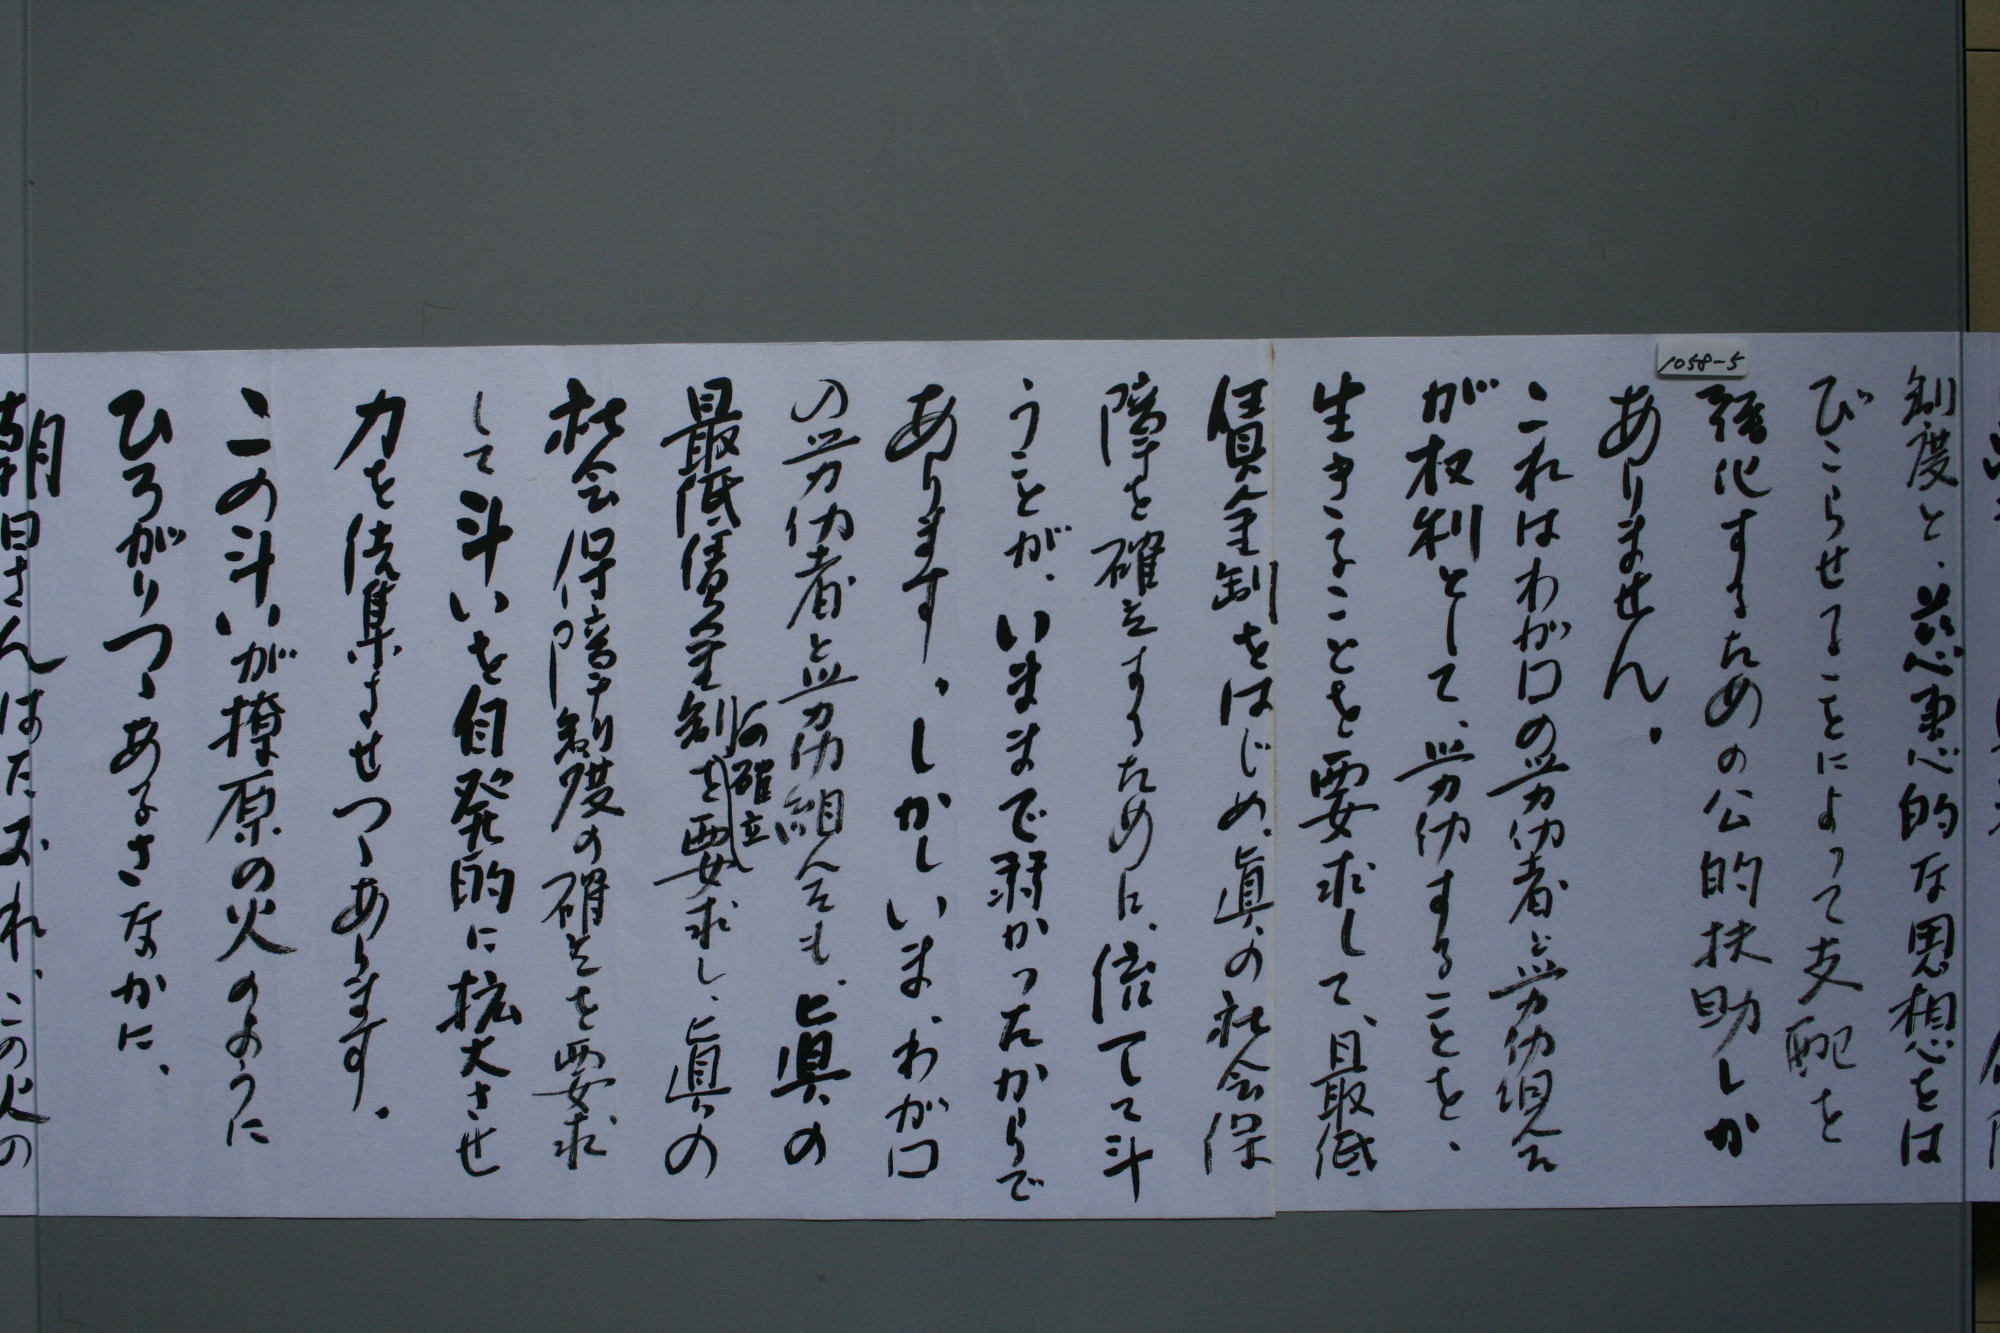 1058-5
制度と、慈恵的な思想をは
びこらせることによって支配を
強化するための公的扶助しか
ありません。
これはわが口の労仂者と労仂組合
が权利として、労仂することを、
生きることを要求して、最低
賃金制をはじめ、眞の社会保
障を確立するために、
てて斗
うことが、いままで弱かったからで
あります。しかしいま、わが口
の労仂者と労仂組合も、眞の
最低賃金制を要求し、眞の
の確立
社会保障制度の確立を要求
して斗いを自発的に拡大させ
力を結集させつゝあります。
この斗いが撩原の火のように
ひろがりつゝあるさなかに、
朝日さんはたおれ、この火の